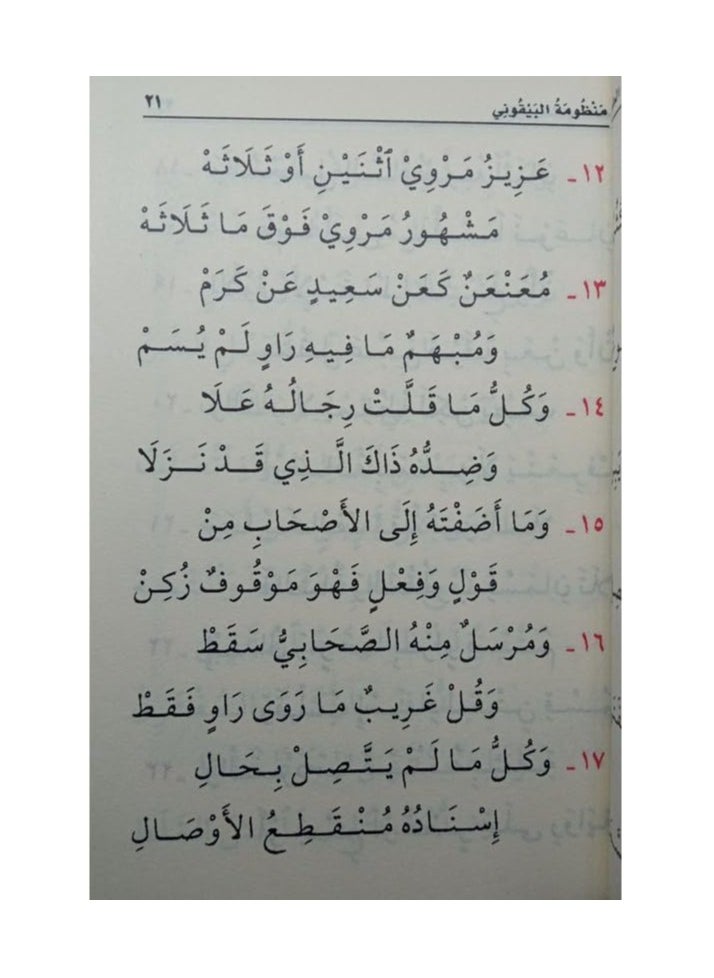 مَنْظُومَةُ البَيْقُونِي ٢١
١٢- عَزِيزُ مَرْوِيْ ٱثْنَيْنِ أَوْ ثَلَاثَهْ
مَشْهُورُ مَرْوِيْ فَوْقَ مَا ثَلَاثَهْ
١٣- مُعَنْعَنٌ كَعَنْ سَعِيدٍ عَنْ كَرَمْ
وَمُبْهَمٌ مَا فِيهِ رَاوٍ لَمْ يُسَمْ
١٤- وَكُلُّ مَا قَلَّتْ رِجَالُهُ عَلَا
وَضِدُّهُ ذَاكَ الَّذِي قَدْ نَزَلَا
١٥- وَمَا أَضَفْتَهُ إِلَى الأَصْحَابِ مِنْ
قَوْلٍ وَفِعْلٍ فَهْوَ مَوْقُوفٌ زُكِنْ
١٦- وَمُرْسَلٌ مِنْهُ الصَّحَابِيُّ سَقَطْ
وَقُلْ غَرِيبٌ مَا رَوَى رَاوٍ فَقَطْ
١٧- وَكُلُّ مَا لَمْ يَتَّصِلْ بِحَالِ
إِسْنَادُهُ مُنْقَطِعُ الأَوْصَالِ